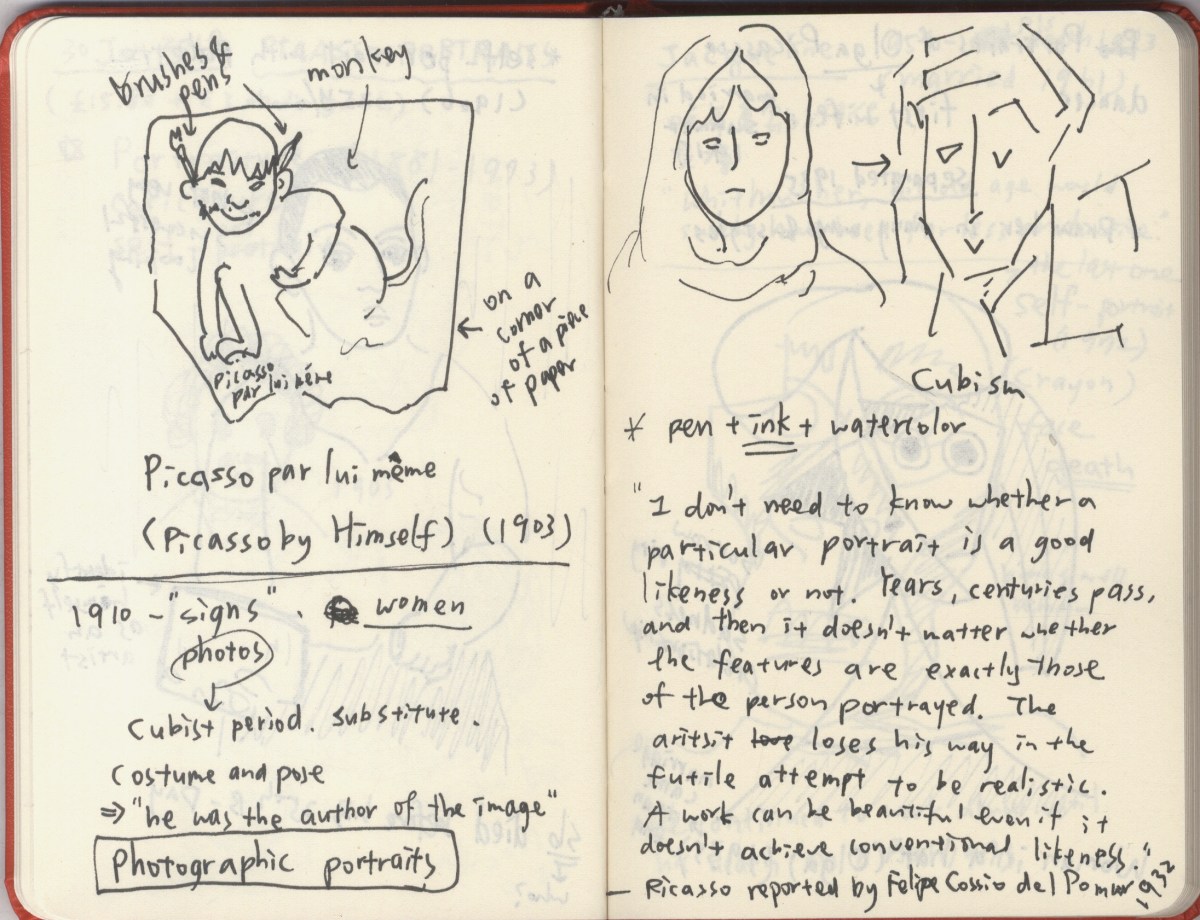 brushes &
pens
monkey
on a
corner
of a piece
of paper
Picasso
par lui même
Picasso par lui même
(Picasso by Himself) (1903)
1910 - "signs". women
photos
Cubist period. substitute.
costume and pose
⇒ "he was the author of the image"
Photographic portraits
Cubism
* pen + ink + watercolor
"I don't need to know whether a
particular portrait is a good
likeness or not. Years, centuries pass,
and then it doesn't matter whether
the features are exactly those
of the person portrayed. The
aritsit loses his way in the
futile attempt to be realistic.
A work can be beautiful even if it
doesn't achieve conventional likeness"
— Picasso reported by Felipe Cossio del Pomar 1932